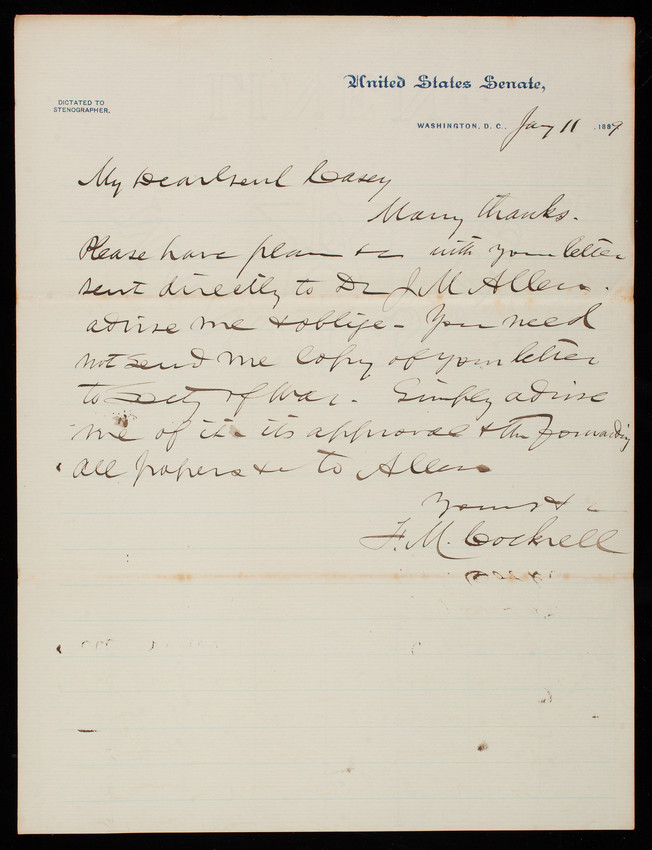 United States Senate,
DICTATED TO
STENOGRAPHER.
WASHINGTON, D. C., Jany 11, 1889
My Dear Genl Casey
Many thanks.
Please have plan &c with your letter
sent directly to Dr J M Allen.
advise me & oblige - You need
not send me copy of your letter
to Secty of War. Simply advise
me of it - its approval & the forwarding
all papers &c to Allen
Yours &c
F. M. Cockrell